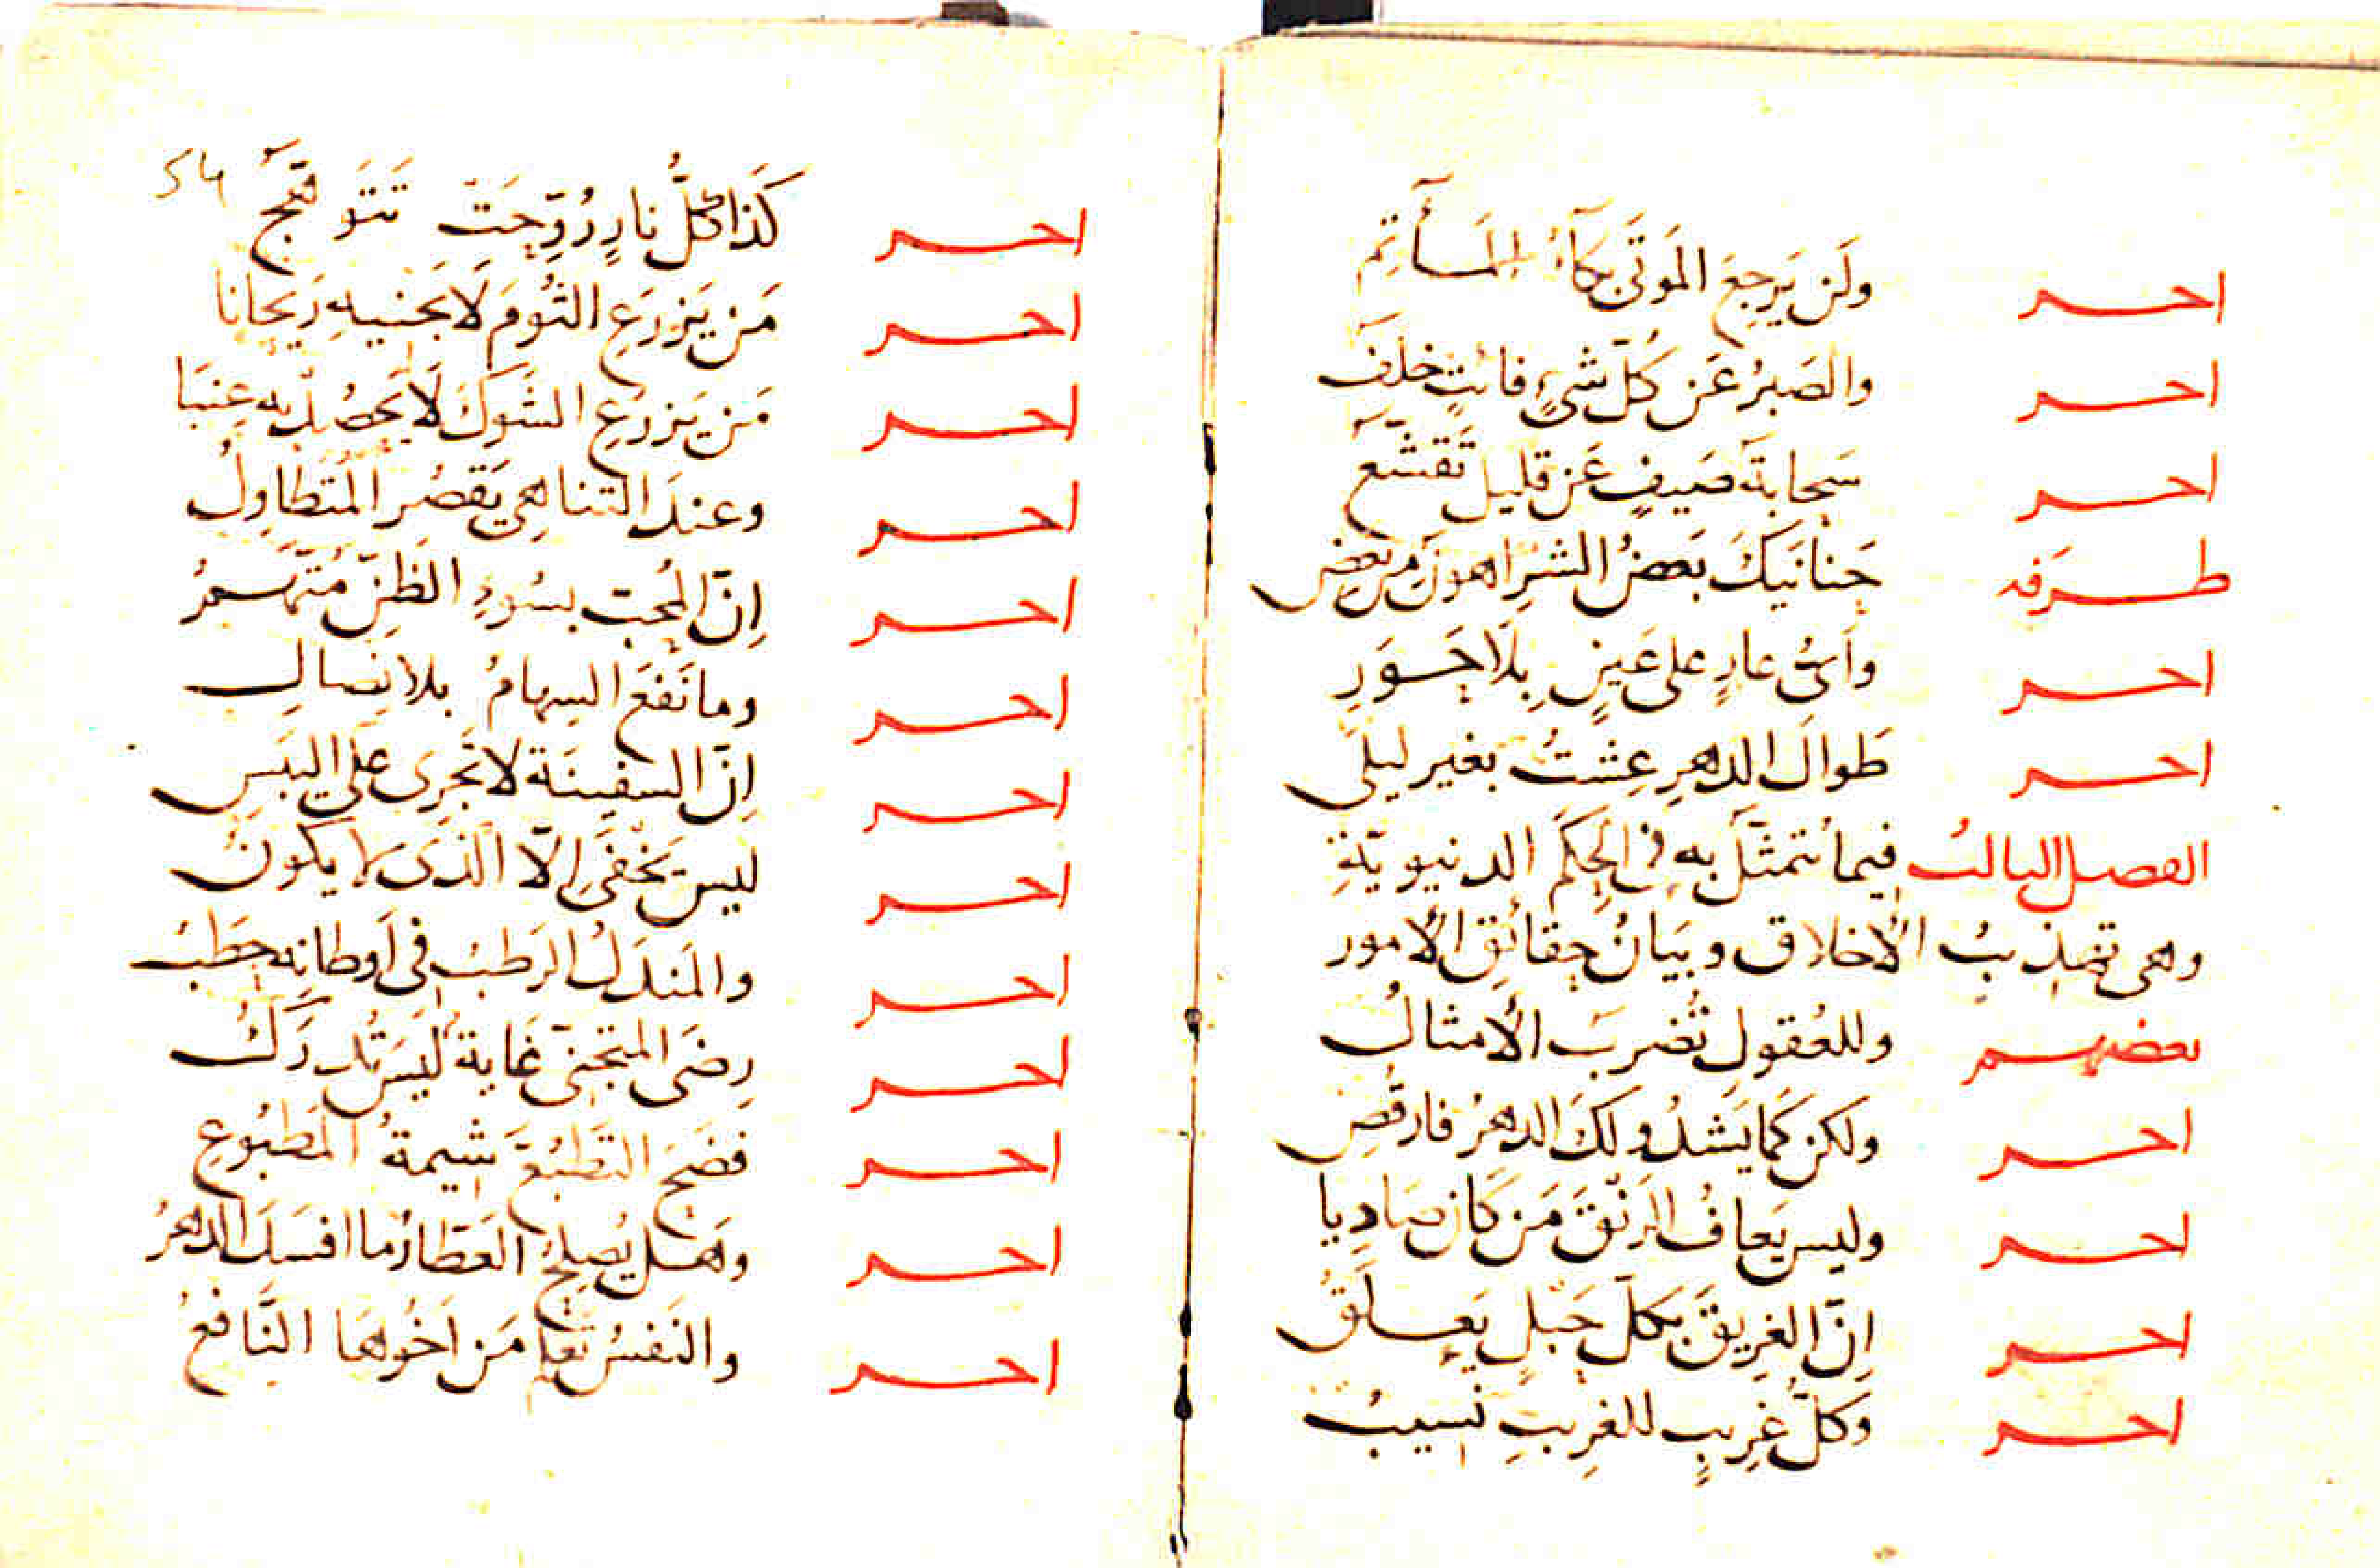 احــر ولَن يَرجِعَ المَوتَى بُكَآءُ المَــأتِم
احــر والصَبرُ عَن كُلّ شيءٍ فائتٍ خلَفَ
احــر سَحابَةَ صَيفٍ عَن قليل تَقَشّع
طــرَفه حَنانَيكَ بَعضُ الشّرِ اهونُ مِن بَعضِ
احــر وأىُّ عارٍ على عَينٍ بِلَا حَــوَرِ
احــر طَوالَ الدهرِ عِشتُ بغير ليلَى
الفصل الثالثُ فيما نتمثّل به في الحِكَم الدنيويّةِ
وهى تهذيبُ الأخلاق وبَيَانُ حقائق الأمور
بعضهــم وللعُقولِ تُضربَ الأمثالُ
احــر ولكن كَمَا يَشدُو لكَ الدهرُ فارقُصِ
احــر وليس يَعافُ الرَنْقَ مَن كَان صَادِيا
احــر اِنّ الغرِيقَ بكلّ حَبلٍ يَعــلَقُ
احــر وكلُّ غرِيبٍ للغرِيبِ نَسيبُ
54
احــر كَذَا كُلُّ نارٍ رُوِّحَتْ تَتَوَهَّج
احــر مَن يَزرَعِ الثُومَ لَا يَجنيهِ رَيحانا
احــر مَن يَزرَعِ الشَوكَ لَا يَحصُد به عِنَبَا
احــر وعندَ التناهِي يَقصُر المُتَطاوِلُ
احــر اِنّ المُحِبّ بسُوءِ الظَنِّ مُتّهــمُ
احــر وما نَفَعَ السِهامُ بلا نِصالِ
احــر اِنّ السفينَة لا تَجرِى عَلَى اليَبَسِ
احــر ليس يَخفَى اِلّا الّذى لا يكونُ
احــر والمَندَلُ الرَطبُ فى أَوطانِه حَطَبُ
احــر رِضَى المتجنّى غَايةٌ لَيسَ تُدرَكُ
احــر فَضَحَ التَطَبُّعَ شيمةُ المَطبُوعِ
احــر وهَــل يُصلِحُ العَطّارُ ما افسَدَ الدهرُ
احــر والنَفسُ تَعلم مَن اَخُوهَا النَّافعُ